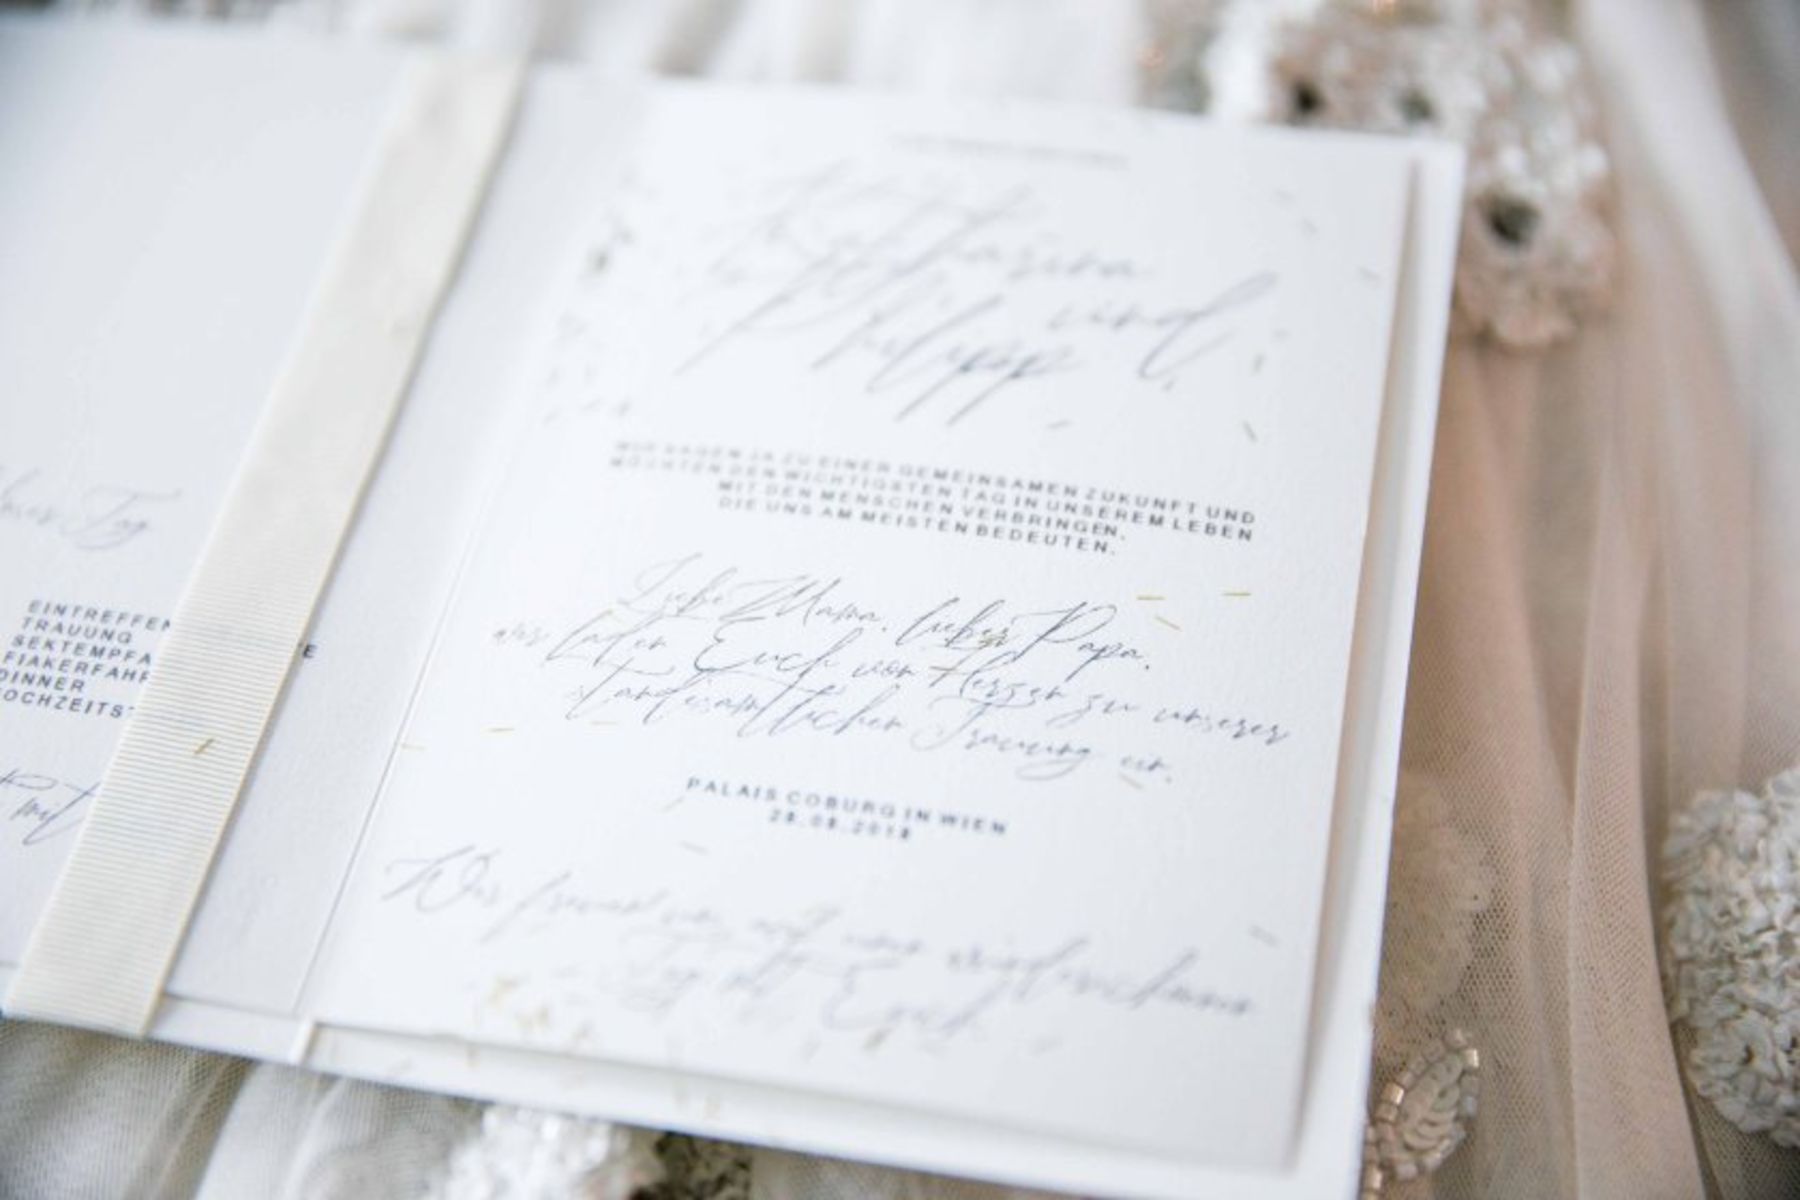 Tag
EINTREFFEN
TRAUUNG
SEKTEMPFA
FIAKERFAHR
DINNER
OCHZEITS
E
mit
Katharina
und
Philipp
WIR SAGEN JA ZU EINER GEMEINSAMEN ZUKUNFT UND
MÖCHTEN DEN WICHTIGSTEN TAG IN UNSEREM LEBEN
MIT DEN MENSCHEN VERBRINGEN,
DIE UNS AM MEISTEN BEDEUTEN.
Liebe Mama, lieber Papa,
wir laden Euch von Herzen zu unserer
standesamtlichen Trauung ein.
PALAIS COBURG IN WIEN
28.08.2018
Wir freuen uns auf einen wunderschönen
Tag mit Euch